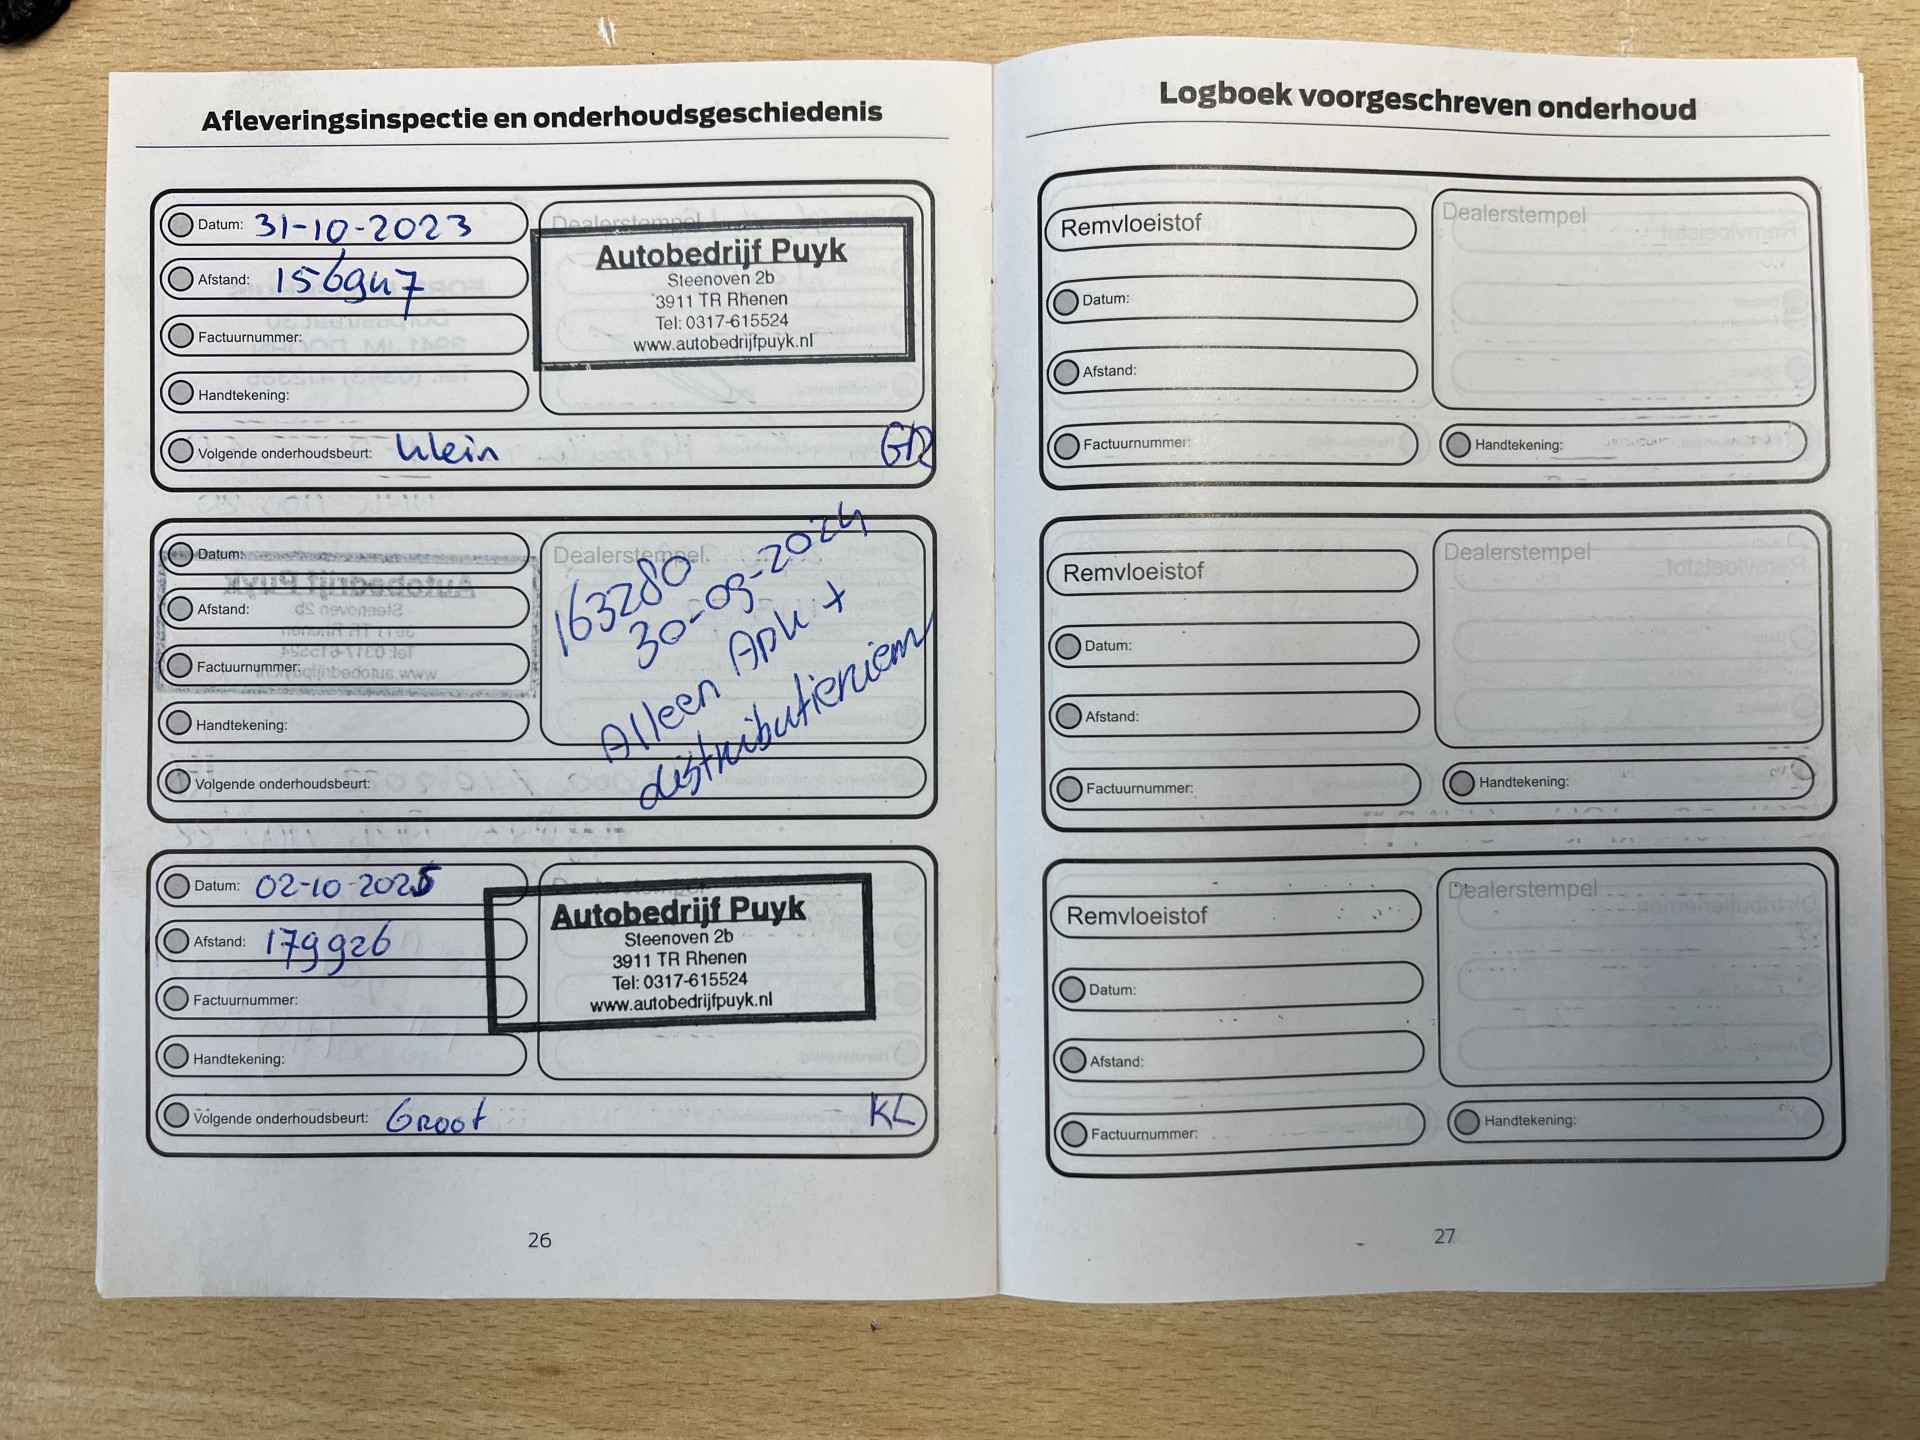 Afleveringsinspectie en onderhoudsgeschiedenis
Datum: 31-10-2023
Afstand: 156947
Factuurnummer:
Handtekening:
Volgende onderhoudsbeurt: klein GR
Dealerstempel
Autobedrijf Puyk
Steenoven 2b
3911 TR Rhenen
Tel: 0317-615524
www.autobedrijfpuyk.nl
Datum:
Afstand:
Factuurnummer:
Handtekening:
Volgende onderhoudsbeurt:
Dealerstempel
163280
30-09-2024
Alleen Apk +
distributieriem
Datum: 02-10-2025
Afstand: 179926
Factuurnummer:
Handtekening:
Volgende onderhoudsbeurt: Groot KL
Dealerstempel
Autobedrijf Puyk
Steenoven 2b
3911 TR Rhenen
Tel: 0317-615524
www.autobedrijfpuyk.nl
26
Logboek voorgeschreven onderhoud
Remvloeistof
Datum:
Afstand:
Factuurnummer:
Dealerstempel
Handtekening:
Remvloeistof
Datum:
Afstand:
Factuurnummer:
Dealerstempel
Handtekening:
Remvloeistof
Datum:
Afstand:
Factuurnummer:
Dealerstempel
Handtekening:
27